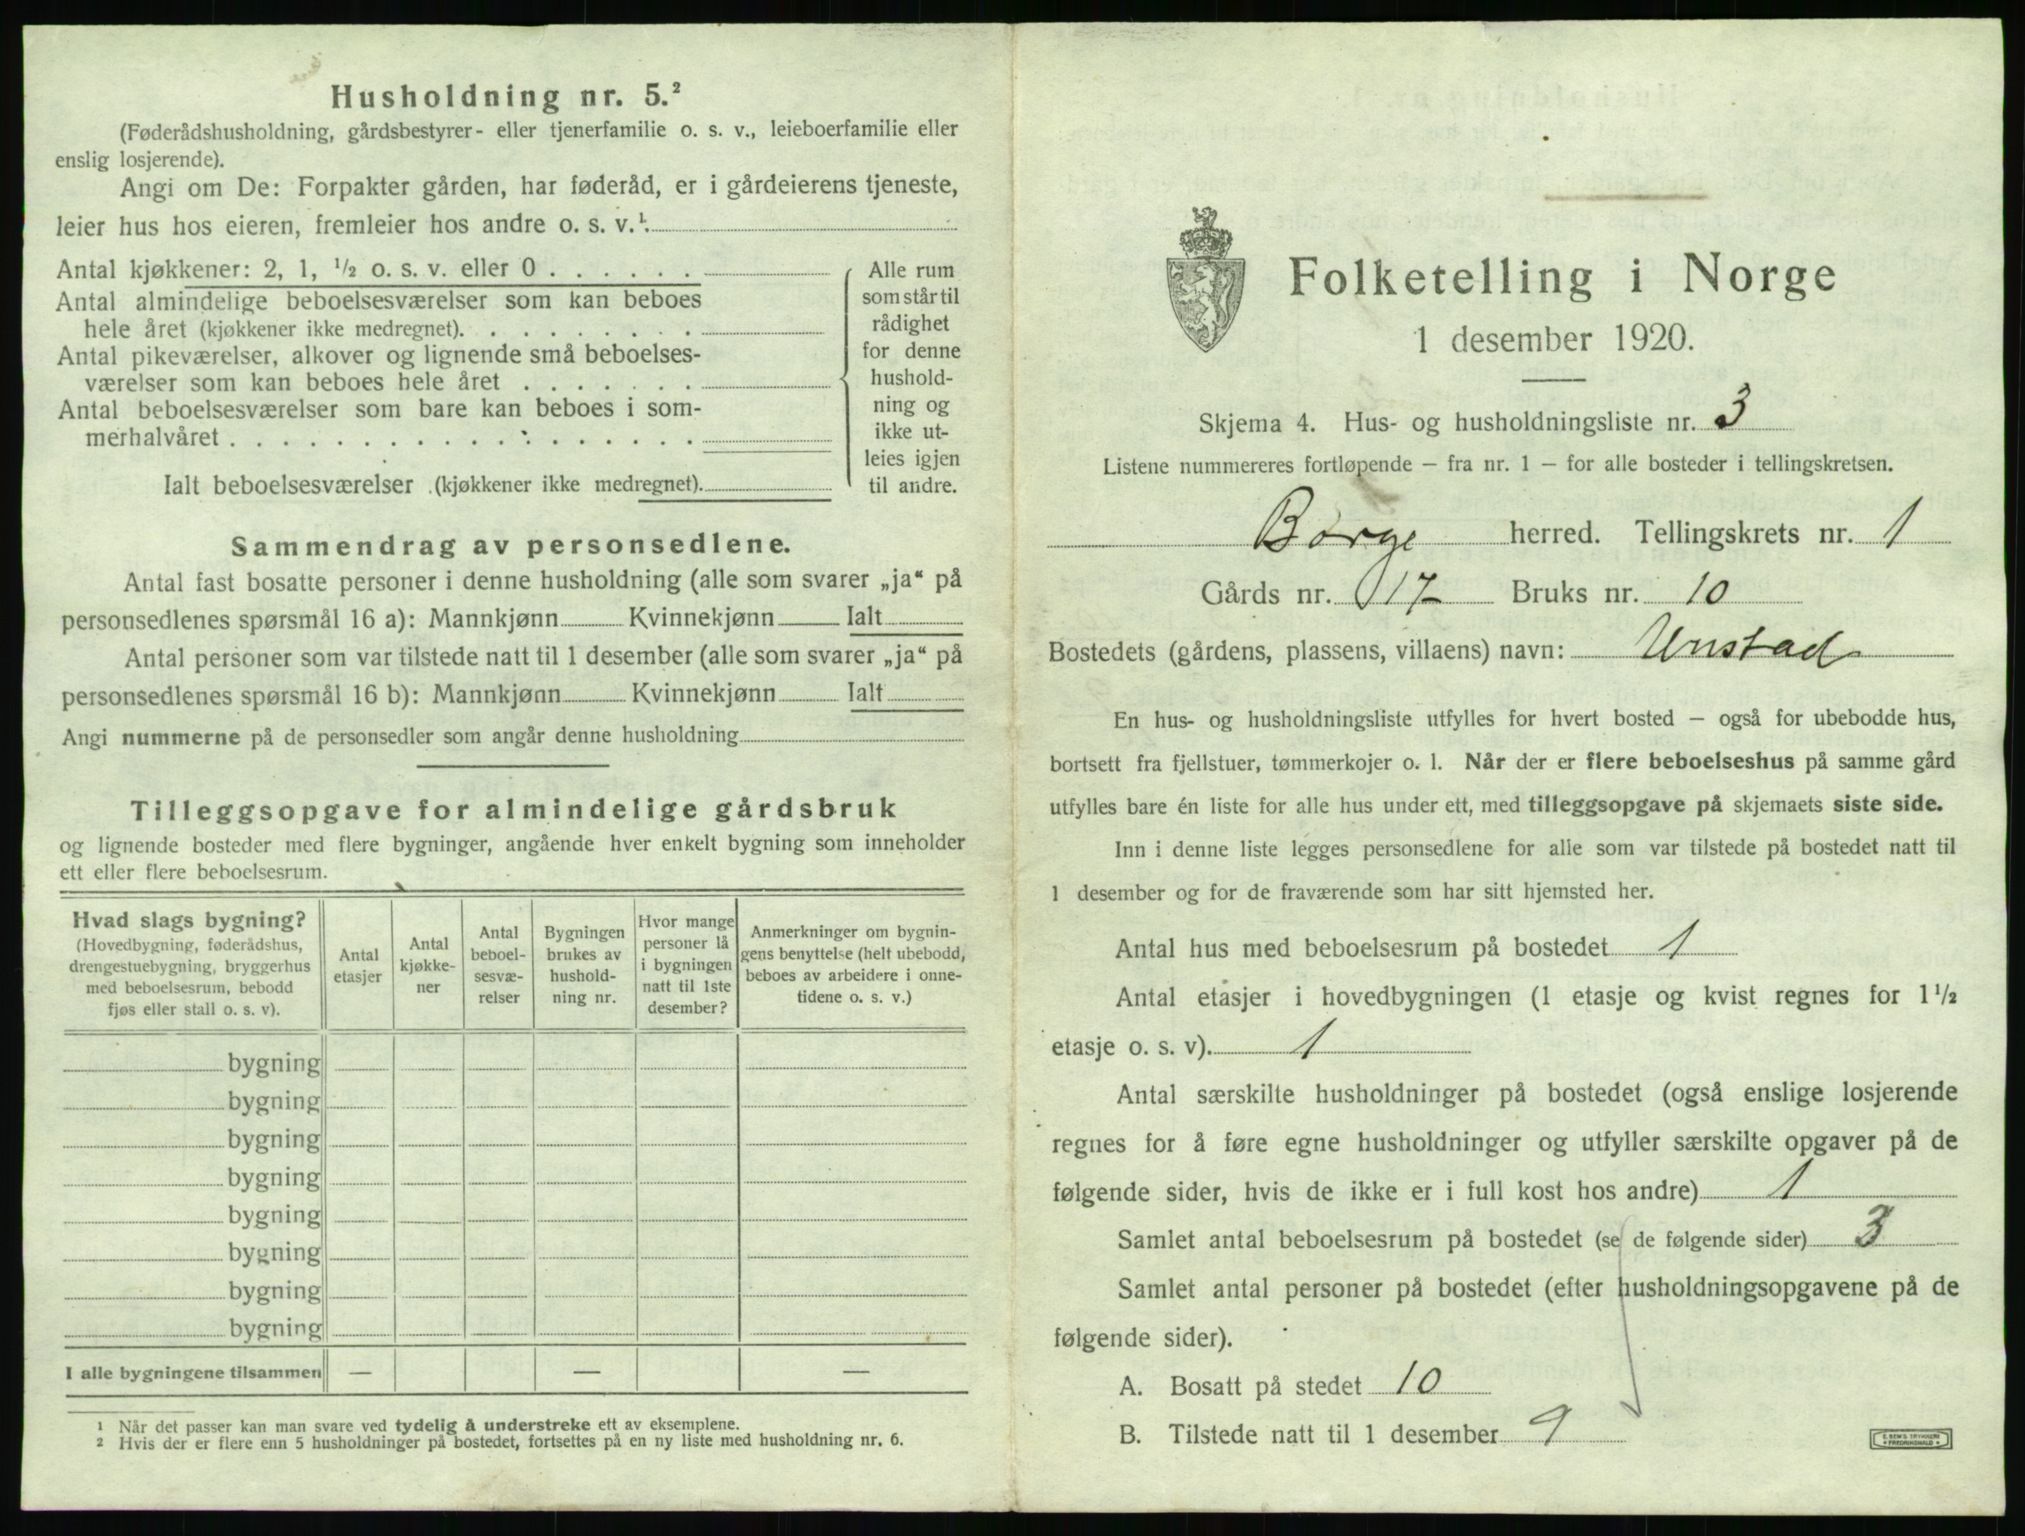 Husholdning nr. 5.²
(Føderådshusholdning, gårdsbestyrer- eller tjenerfamilie o. s. v., leieboerfamilie eller
enslig losjerende).
Angi om De: Forpakter gården, har føderåd, er i gårdeierens tjeneste,
leier hus hos eieren, fremleier hos andre o. s. v.¹
Antal kjøkkener: 2, 1, ½ o. s. v. eller 0 . . . . . .
Antal almindelige beboelsesværelser som kan beboes
hele året (kjøkkener ikke medregnet). . . . . . . . .
Antal pikeværelser, alkover og lignende små beboelses-
værelser som kan beboes hele året . . . . . . .
Antal beboelsesværelser som bare kan beboes i som-
merhalvåret . . . . . . . . . . . . . . . . . .
Ialt beboelsesværelser (kjøkkener ikke medregnet).
Alle rum
som står til
rådighet
for denne
hushold-
ning og
ikke ut-
leies igjen
til andre.
Sammendrag av personsedlene.
Antal fast bosatte personer i denne husholdning (alle som svarer „ja“ på
personsedlenes spørsmål 16 a): Mannkjønn Kvinnekjønn Ialt
Antal personer som var tilstede natt til 1 desember (alle som svarer „ja“ på
personsedlenes spørsmål 16 b): Mannkjønn Kvinnekjønn Ialt
Angi nummerne på de personsedler som angår denne husholdning
Tilleggsopgave for almindelige gårdsbruk
og lignende bosteder med flere bygninger, angående hver enkelt bygning som inneholder
ett eller flere beboelsesrum.
Hvad slags bygning?
(Hovedbygning, føderådshus,
drengestuebygning, bryggerhus
med beboelsesrum, bebodd
fjøs eller stall o. s. v).
Antal
etasjer
Antal
kjøkke-
ner
Antal
beboel-
sesvæ-
relser
Bygningen
brukes av
hushold-
ning nr.
Hvor mange
personer lå
i bygningen
natt til 1ste
desember?
Anmerkninger om bygnin-
gens benyttelse (helt ubebodd,
beboes av arbeidere i onne-
tidene o. s. v.)
bygning
bygning
bygning
bygning
bygning
bygning
bygning
bygning
I alle bygningene tilsammen — — —
¹ Når det passer kan man svare ved tydelig å understreke ett av eksemplene.
² Hvis der er flere enn 5 husholdninger på bostedet, fortsettes på en ny liste med husholdning nr. 6.
Folketelling i Norge
1 desember 1920.
Skjema 4. Hus- og husholdningsliste nr. 3
Listene nummereres fortløpende – fra nr. 1 – for alle bosteder i tellingskretsen.
Borge herred. Tellingskrets nr. 1
Gårds nr. 17 Bruks nr. 10
Bostedets (gårdens, plassens, villaens) navn: Unstad
En hus- og husholdningsliste utfylles for hvert bosted – også for ubebodde hus,
bortsett fra fjellstuer, tømmerkojer o. l. Når der er flere beboelseshus på samme gård
utfylles bare én liste for alle hus under ett, med tilleggsopgave på skjemaets siste side.
Inn i denne liste legges personsedlene for alle som var tilstede på bostedet natt til
1 desember og for de fraværende som har sitt hjemsted her.
Antal hus med beboelsesrum på bostedet 1
Antal etasjer i hovedbygningen (1 etasje og kvist regnes for 1½
etasje o. s. v). 1
Antal særskilte husholdninger på bostedet (også enslige losjerende
regnes for å føre egne husholdninger og utfyller særskilte opgaver på de
følgende sider, hvis de ikke er i full kost hos andre) 1
Samlet antal beboelsesrum på bostedet (se de følgende sider) 3
Samlet antal personer på bostedet (efter husholdningsopgavene på de
følgende sider).
A. Bosatt på stedet 10
B. Tilstede natt til 1 desember 9